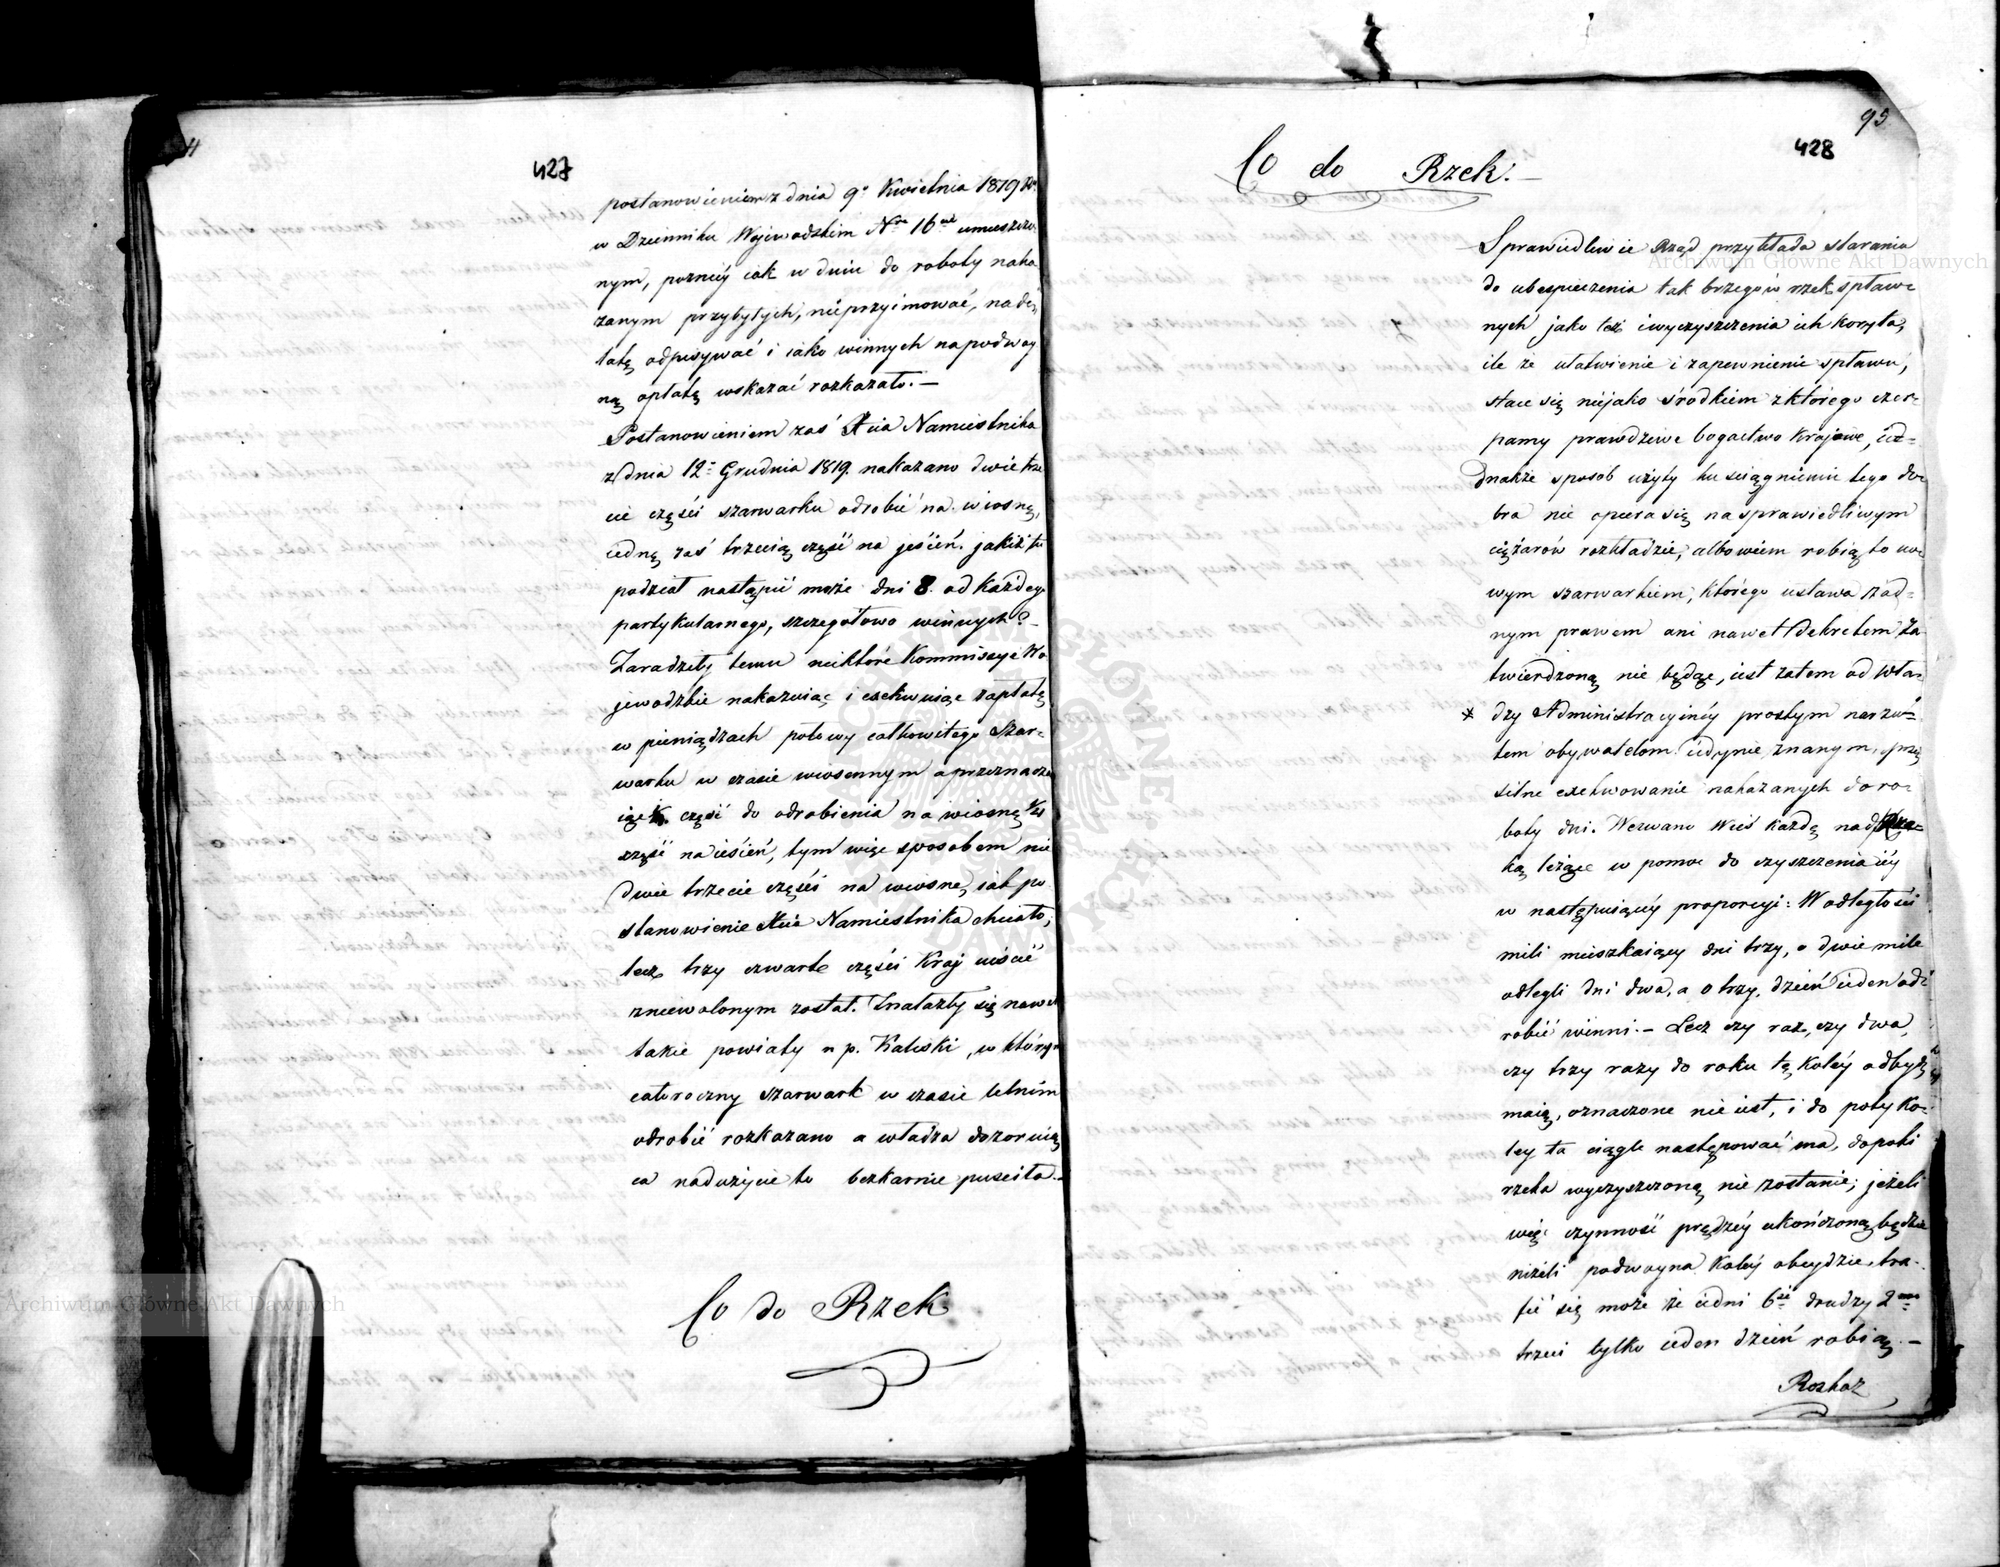 427
postanowieniem z dnia 9º Kwietnia 1819 Ro.
w Dzienniku Wojewodzkim Nro 16ut umieszczo-
nym, pozniéy iak w dniu do roboty naka
zanym przybyłych, nieprzyimować, na de
tatę odpisywać i iako winnych na podwoy
ną opłatę wskazać rozkazało. —
Postanowieniem zaś Xcia Namiestnika
z dnia 12º Grudnia 1819. nakazano dwie trze
cie części szarwarku odrobić na wiosnę,
iedną zaś trzecią część na jesień. jakiż tu
podział nastąpić może dni 8. od każdego
partykularnego, szczegółowo winnych? —
Zaradziły temu niektóre Kommissye Wo
jewodzkie nakazuiąc i exekwuiąc zapłatę
w pieniądzach połowy całkowitego Szar-
warku w czasie wiosennym a przeznacza
iąc ¼ część do odrobienia na wiosnę ¼
część na iesień, tym więc sposobem nie
dwie trzecie części na wiosnę, iak po
stanowienie Xcia Namiestnika chciało,
lecz trzy czwarte części Kraj uiścić
zniewolonym został. Znalazły się nawet
takie powiaty n p. Kaliski, w którym
całoroczny szarwark w czasie letnim
odrobić rozkazano a władza dozoruią
ca nadużycie to bezkarnie puściła. —
Co do Rzek
95
428
Co do Rzek. —
Sprawiedliwie Rząd przykłada starania
do ubespieczenia tak brzegów rzek spław-
nych jako też i wyczyszczenia ich koryta,
ile że ułatwienie i zapewnienie spławu,
staie się niejako środkiem z którego czer-
pamy prawdziwe bogactwo krajowe, ied-
dnakże sposób użyty ku ściągnieniu tego do-
bra nie opiera się na sprawiedliwym
ciężarów rozkładzie, albowiem robią to no-
wym szarwarkiem, którego ustawa żad-
nym prawem ani nawet Dekretem za-
twierdzoną nie będąc, iest zatem od Wła-
* dzy Administracyinéy prostym narzu-
tem obywatelom iedynie znanym, przez
silne exekwowanie nakazanych do ro-
boty dni. Wezwano Wieś każdą nad Rze-
ką leżące w pomoc do czyszczenia iéy
w następuiącéy proporcyi: W odległości
mili mieszkaiący dni trzy, o dwie mile
odlegli dni dwa, a o trzy, dzień ieden od-
robić winni. — Lecz czy raz, czy dwa,
czy trzy razy do roku tę koléy odbydź
maią, oznaczone nie iest, i do póty ko-
ley ta ciągle następować ma, dopóki
rzeka wyczyszczoną nie zostanie; jeżeli
więc czynność prędzéy ukończoną będzie
niżeli podwoyna koléy obeydzie, tra-
fić się może że iedni 6ść drudzy 2wa
trzeci tylko ieden dzień robią. —
Rozkaz
Archiwum Główne Akt Dawnych
Archiwum Główne Akt Dawnych